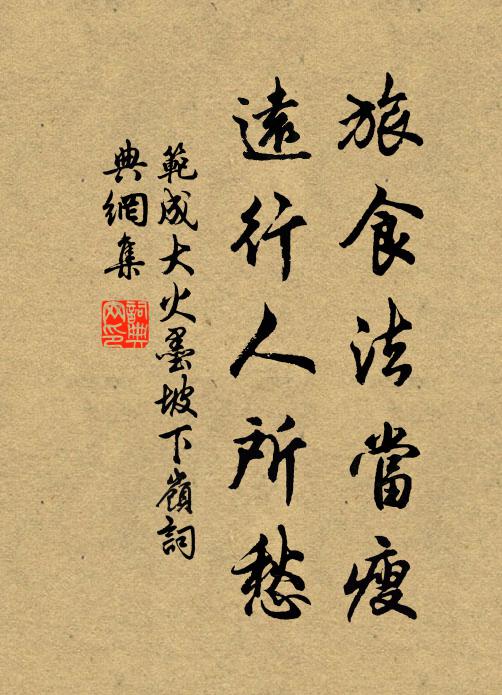 旅食法當瘦
遠行人所愁
範成大火墨坡下嶺詞
典網集
詞典網印